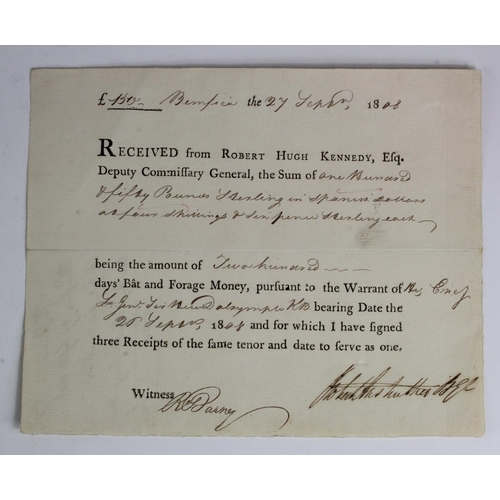 £ 150,, Bemfica the 27 Septr, 1808
RECEIVED from ROBERT HUGH KENNEDY, Esq.
Deputy Commiſſary General, the Sum of one Hundred
& fifty Pounds Sterling in Spanish Dollars
at four Shillings & Six pence Sterling each
being the amount of Two hundred
days' Bât and Forage Money, pursuant to the Warrant of His Excy
Lt Genl Sir Hew Dalrymple KB bearing Date the
26 Septr 1808 and for which I have signed
three Receipts of the same tenor and date to serve as one.
Witness